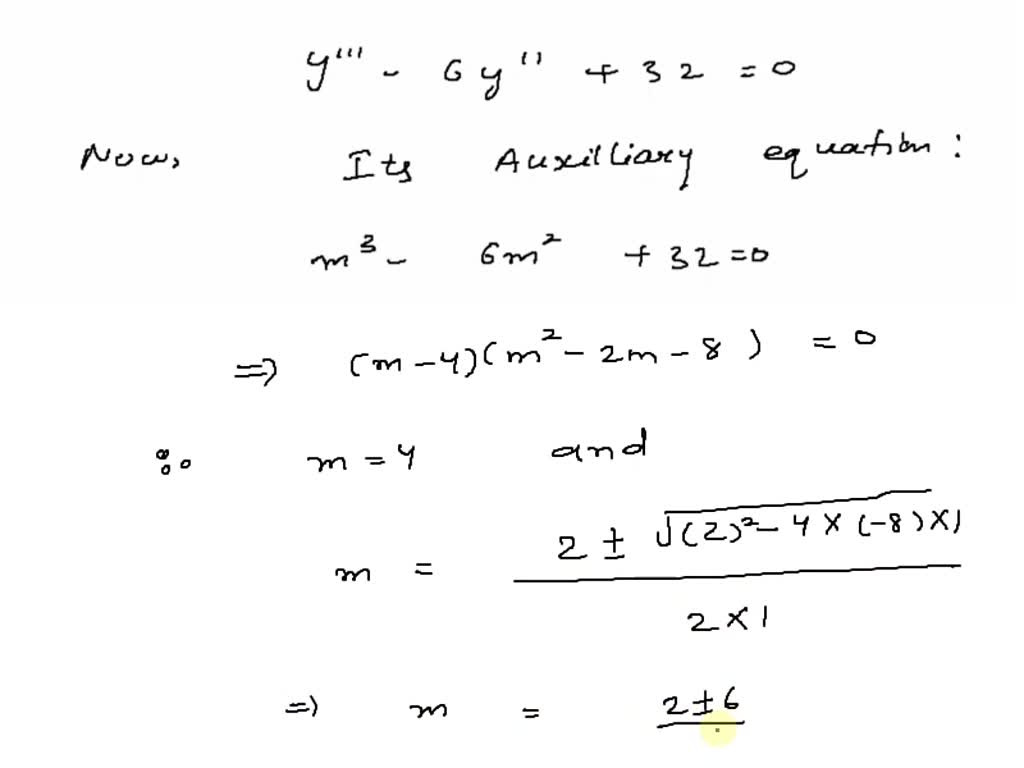 y''' - 6y'' + 32 = 0
Now, Its Auxilliary equation:
m³ - 6m² + 32 = 0
=> (m-4)(m² - 2m - 8) = 0
∴ m = 4 and
m = 2 ± √(2)² - 4 × (-8) × 1
2 × 1
=> m = 2 ± 6